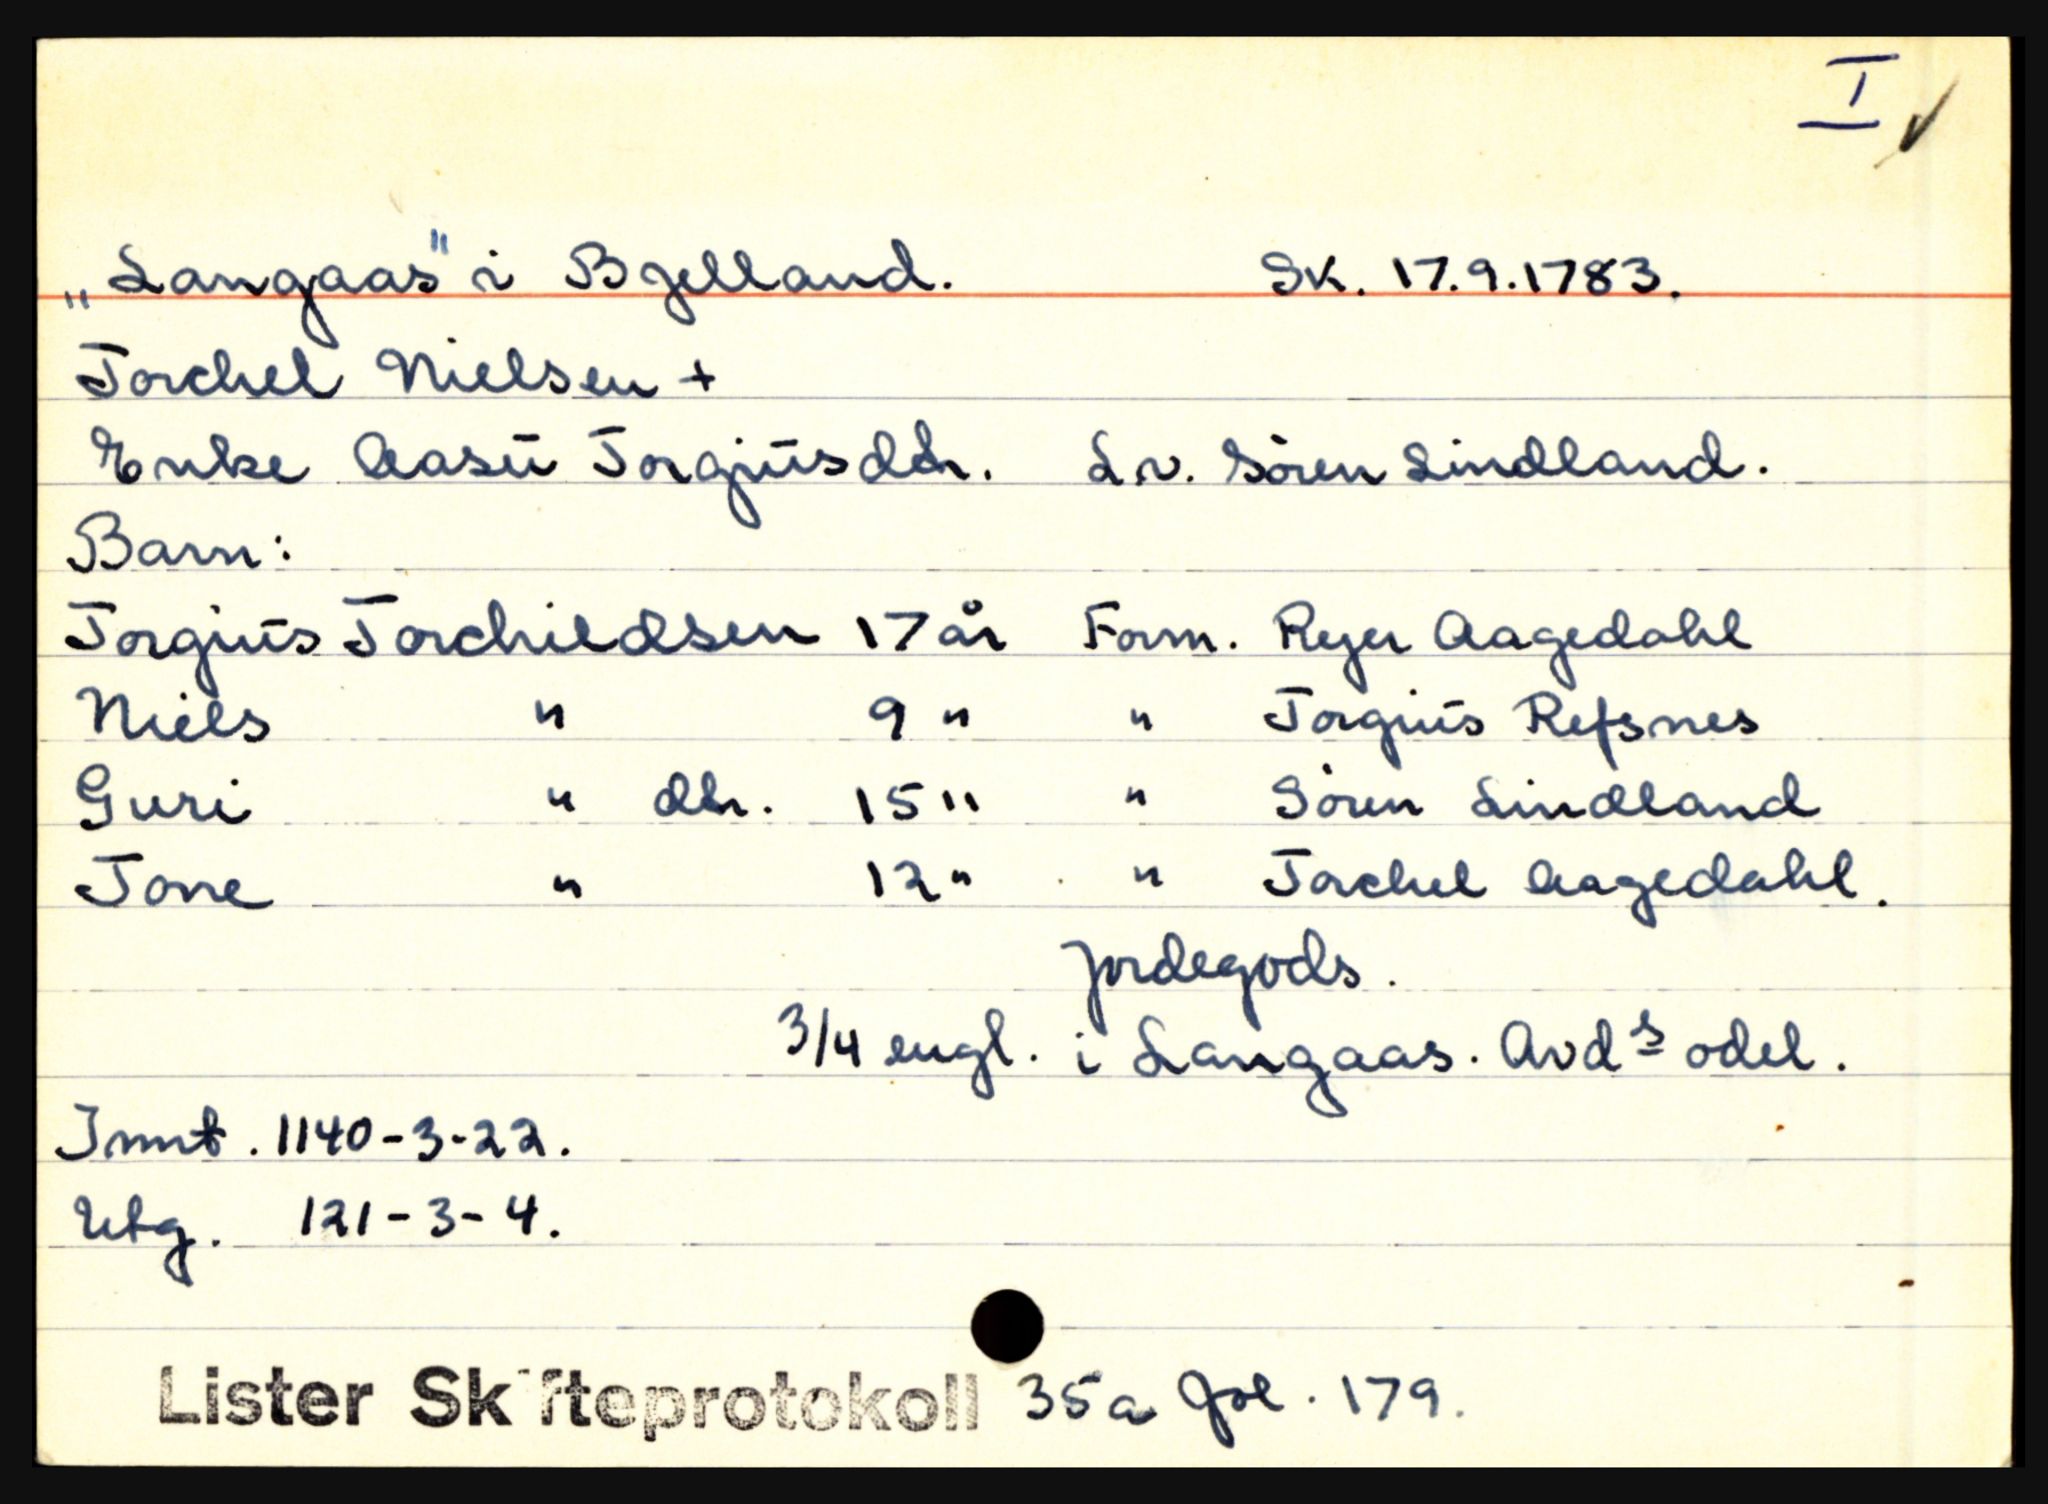 I ✓
„Langaas" i Bjelland. Sk. 17.9.1783.
Torchel Nielsen +
Enke Aasū Torgiūsdtr. L.v. Sören Lindland.
Barn:
Torgiūs Torchildsen 17 år Form. Reyer Aagedahl
Niels " 9 " " Torgiūs Refsnes
Guri " dtr. 15 " " Sören Lindland
Tone " 12 " " Torchel Aagedahl.
Jordegods.
3/4 engl. i Langaas. Avds odel.
Innt. 1140-3-22.
Utg. 121-3-4.
Lister Skifteprotokoll 35a fol. 179.